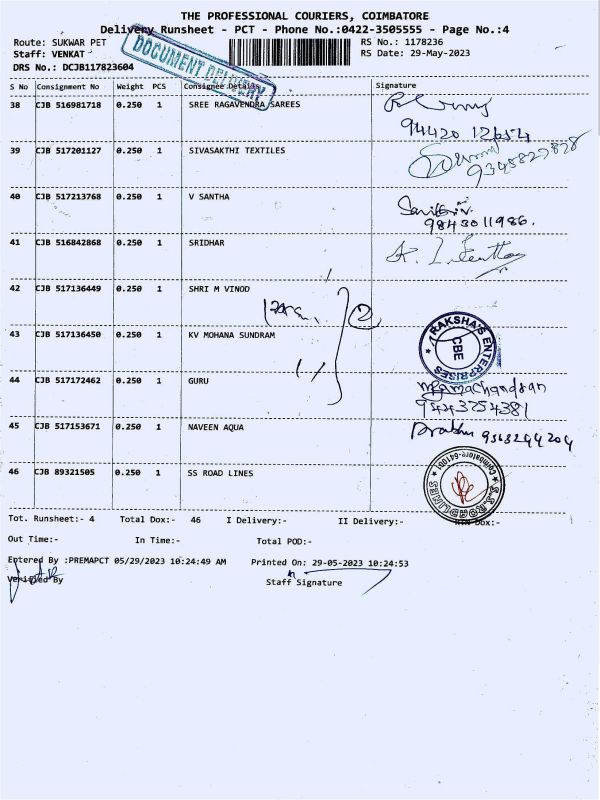 THE PROFESSIONAL COURIERS, COIMBATORE
Delivery Runsheet - PCT - Phone No.:0422-3505555 - Page No.:4
Route: SUKWAR PET
RS No.: 1178236
Staff: VENKAT
RS Date: 29-May-2023
DRS No.: DCJB117823604
DOCUMENT DELIVERY
S No Consignment No Weight PCS Consignee Details Signature
38 CJB 516981718 0.250 1 SREE RAGAVENDRA SAREES
94420 12654
39 CJB 517201127 0.250 1 SIVASAKTHI TEXTILES
9345827878
40 CJB 517213768 0.250 1 V SANTHA
9843011986.
41 CJB 516842868 0.250 1 SRIDHAR
42 CJB 517136449 0.250 1 SHRI M VINOD
2
43 CJB 517136450 0.250 1 KV MOHANA SUNDRAM
RAKSHA'S ENTERPRISES
CBE
44 CJB 517172462 0.250 1 GURU
9443254381
45 CJB 517153671 0.250 1 NAVEEN AQUA
Prabhu 9563244204
46 CJB 89321505 0.250 1 SS ROAD LINES
S.S.ROADLINES Coimbatore-641001
Tot. Runsheet:- 4 Total Dox:- 46 I Delivery:- II Delivery:- RTN Dox:-
Out Time:- In Time:- Total POD:-
Entered By :PREMAPCT 05/29/2023 10:24:49 AM Printed On: 29-05-2023 10:24:53
Verified By Staff Signature